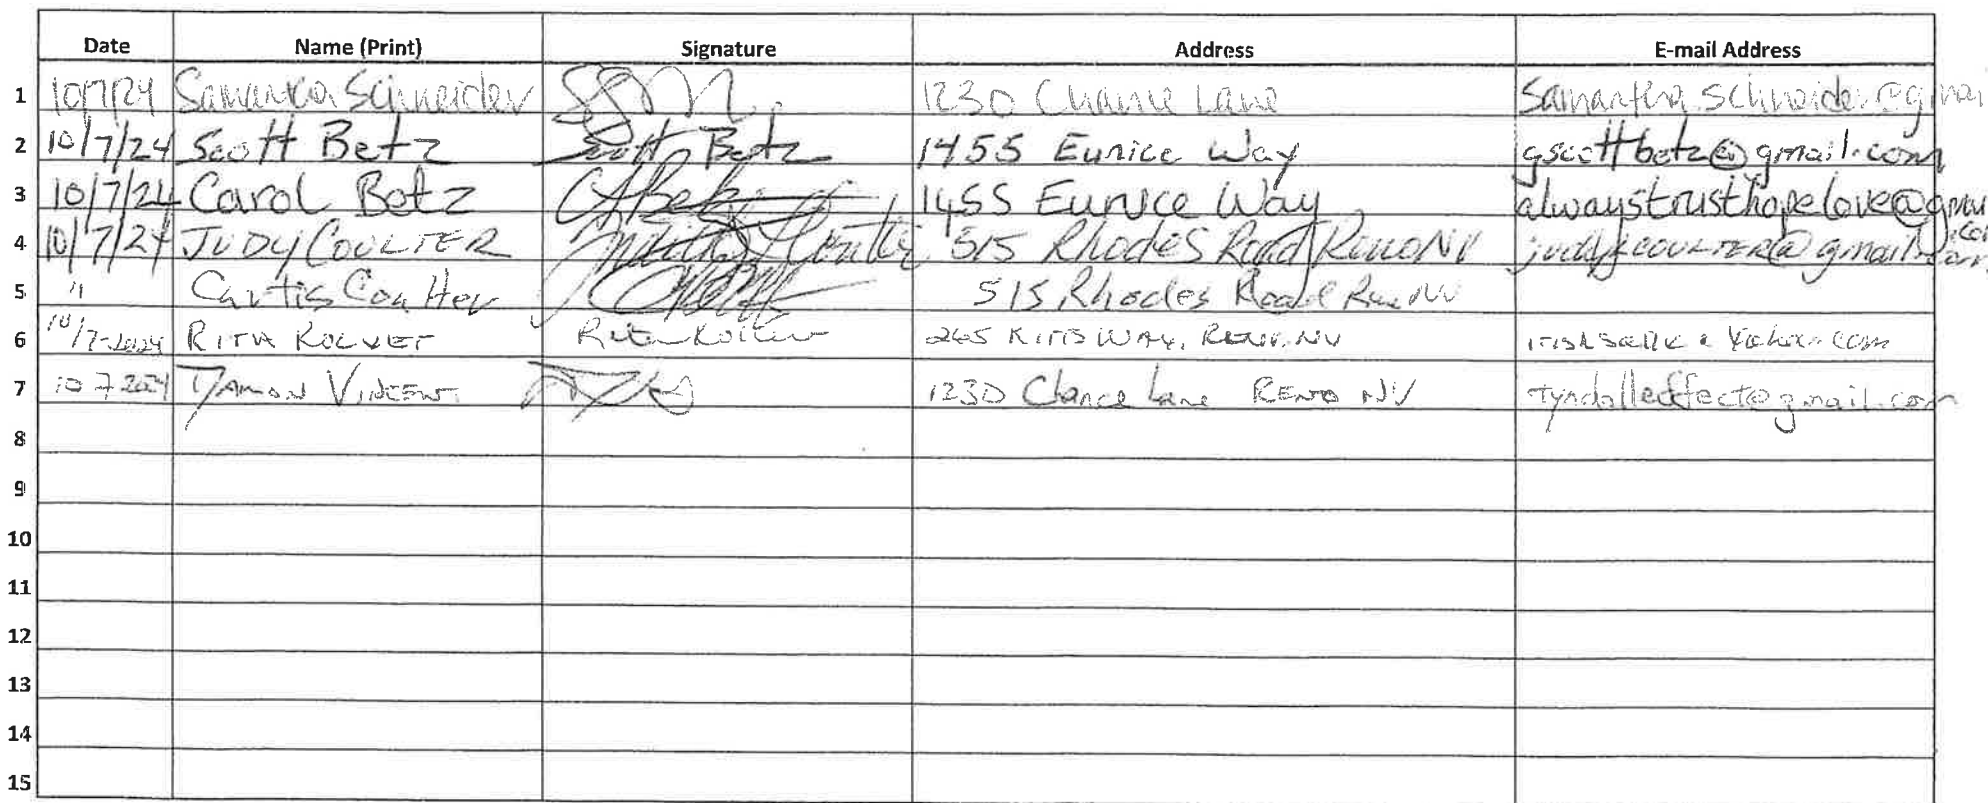 Date Name (Print) Signature Address E-mail Address
1 10/7/24 Samantha Schneider 1230 Chance Lane Samantha.Schneider@gmai
2 10/7/24 Scott Betz Scott Betz 1455 Eunice Way gscottbetz@gmail.com
3 10/7/24 Carol Betz 1455 Eunice Way alwaystrusthopelove@gmail.com
4 10/7/24 JUDY COULTER 515 Rhodes Road Reno NV judyjcoulter@gmail.com
5 " Curtis Coulter 515 Rhodes Road Reno NV
6 10/7-2024 RITA 265 KITTS WAY, RENO, NV
7 10 7 2024 DAMON VINCENT 1230 Chance Lane RENO NV tyndalleffect@gmail.com
8
9
10
11
12
13
14
15